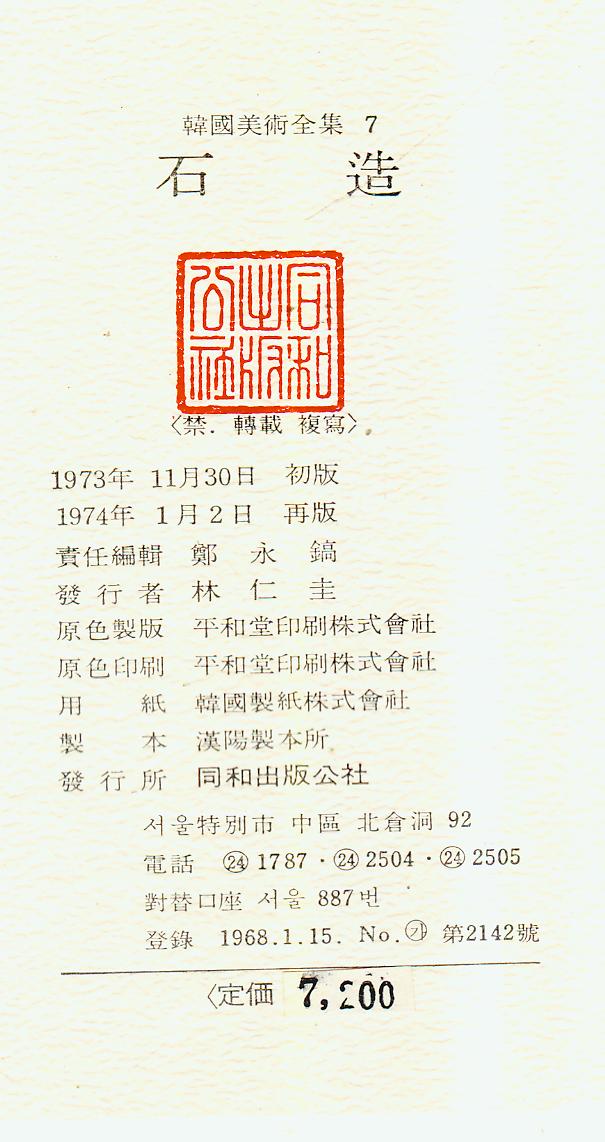 韓國美術全集 7
石造
同和出版公社
〈禁. 轉載 複寫〉
1973年 11月30日 初版
1974年 1月2日 再版
責任編輯 鄭永鎬
發行者 林仁圭
原色製版 平和堂印刷株式會社
原色印刷 平和堂印刷株式會社
用紙 韓國製紙株式會社
製本 漢陽製本所
發行所 同和出版公社
서울特別市 中區 北倉洞 92
電話 ㉔ 1787·㉔ 2504·㉔ 2505
對替口座 서울 887번
登錄 1968.1.15. No.㉮ 第2142號
〈定価 7,200